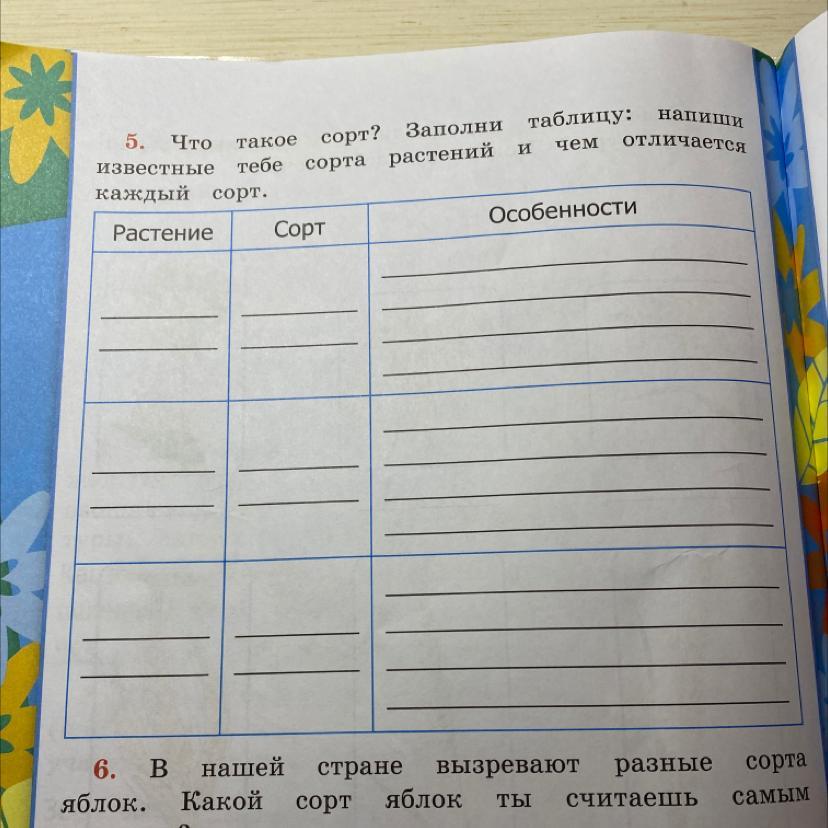 5. Что такое сорт? Заполни таблицу: напиши
известные тебе сорта растений и чем отличается
каждый сорт.
Растение Сорт Особенности
6. В нашей стране вызревают разные сорта
яблок. Какой сорт яблок ты считаешь самым